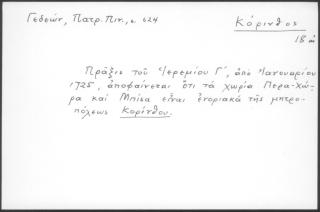 Γεδεών, Πατρ. Πιν., σ. 624
Κόρινθος
18 α
Πρᾶξις τοῦ Ἱερεμίου Γ΄, ἀπὸ Ἰανουαρίου
1725, ἀποφαίνεται ὅτι τὰ χωρία Περα-Χώ-
ρα καὶ Μπίσα εἶναι ἐνοριακὰ τῆς μητρο-
πόλεως Κορίνθου.